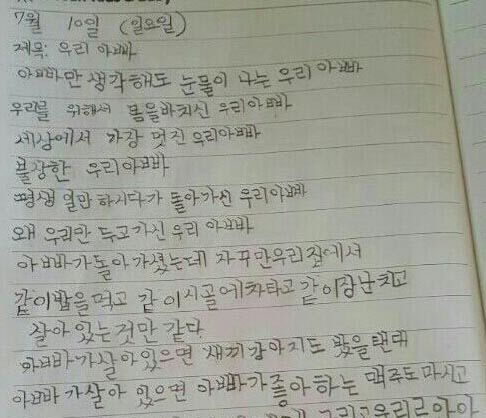 7월 10일 (일요일)
제목: 우리 아빠
아빠만 생각해도 눈물이 나는 우리 아빠
우리를 위해서 몸을바치신 우리아빠
세상에서 가장 멋진 우리아빠
불상한 우리아빠
평생 일만 하시다가 돌아가신 우리아빠
왜 우리만 두고가신 우리 아빠
아빠가돌아가셨는데 자꾸만우리집에서
같이밥을먹고 같이시골에차타고 같이장난치고
살아있는것만 같다
아빠가살아있으면 새끼강아지도 봤을탠대
아빠가살아 있으면 아빠가좋아하는 맥주도마시고